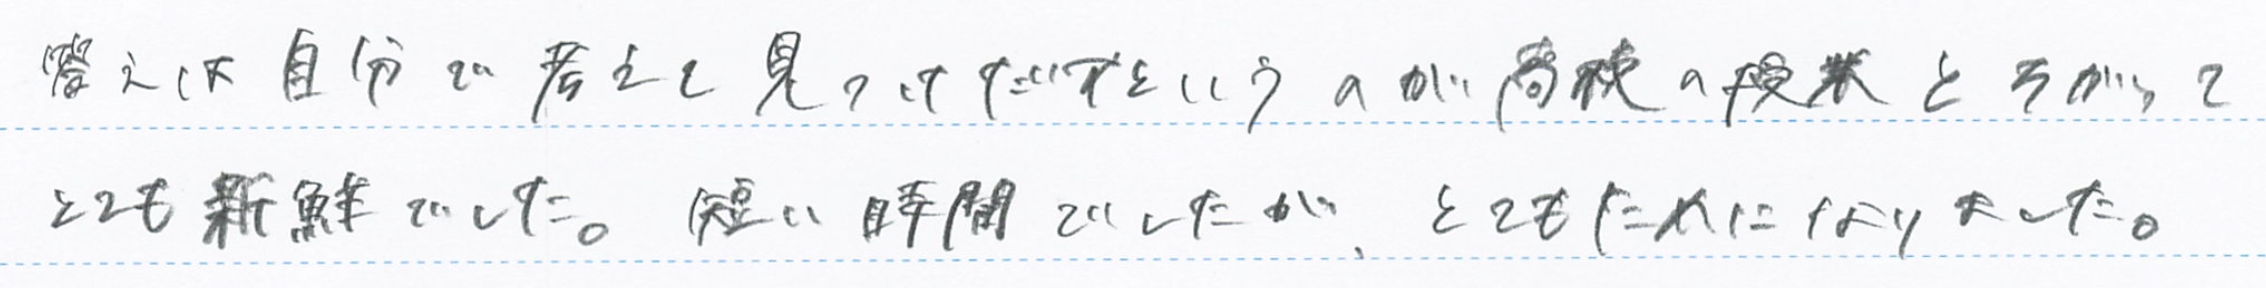 答えは自分で考えて見つけだすというのが高校の授業とちがって
とても新鮮でした。短い時間でしたが、とてもためになりました。